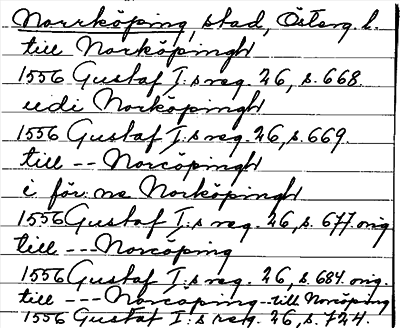 Norrköping, stad, Österg. l.
till Norköpingh
1556 Gustaf I:s reg. 26, s. 668.
udi Norköpingh
1556 Gustaf I:s reg. 26, s. 669.
till -- Norcöpingh
i för:ne Norköpingh
1556 Gustaf I:s reg. 26, s. 677. orig.
till --- Norcöping
1556 Gustaf I:s reg. 26, s. 684. orig.
till --- Norcöping - till Norcöping
1556 Gustaf I:s reg. 26, s. 724.